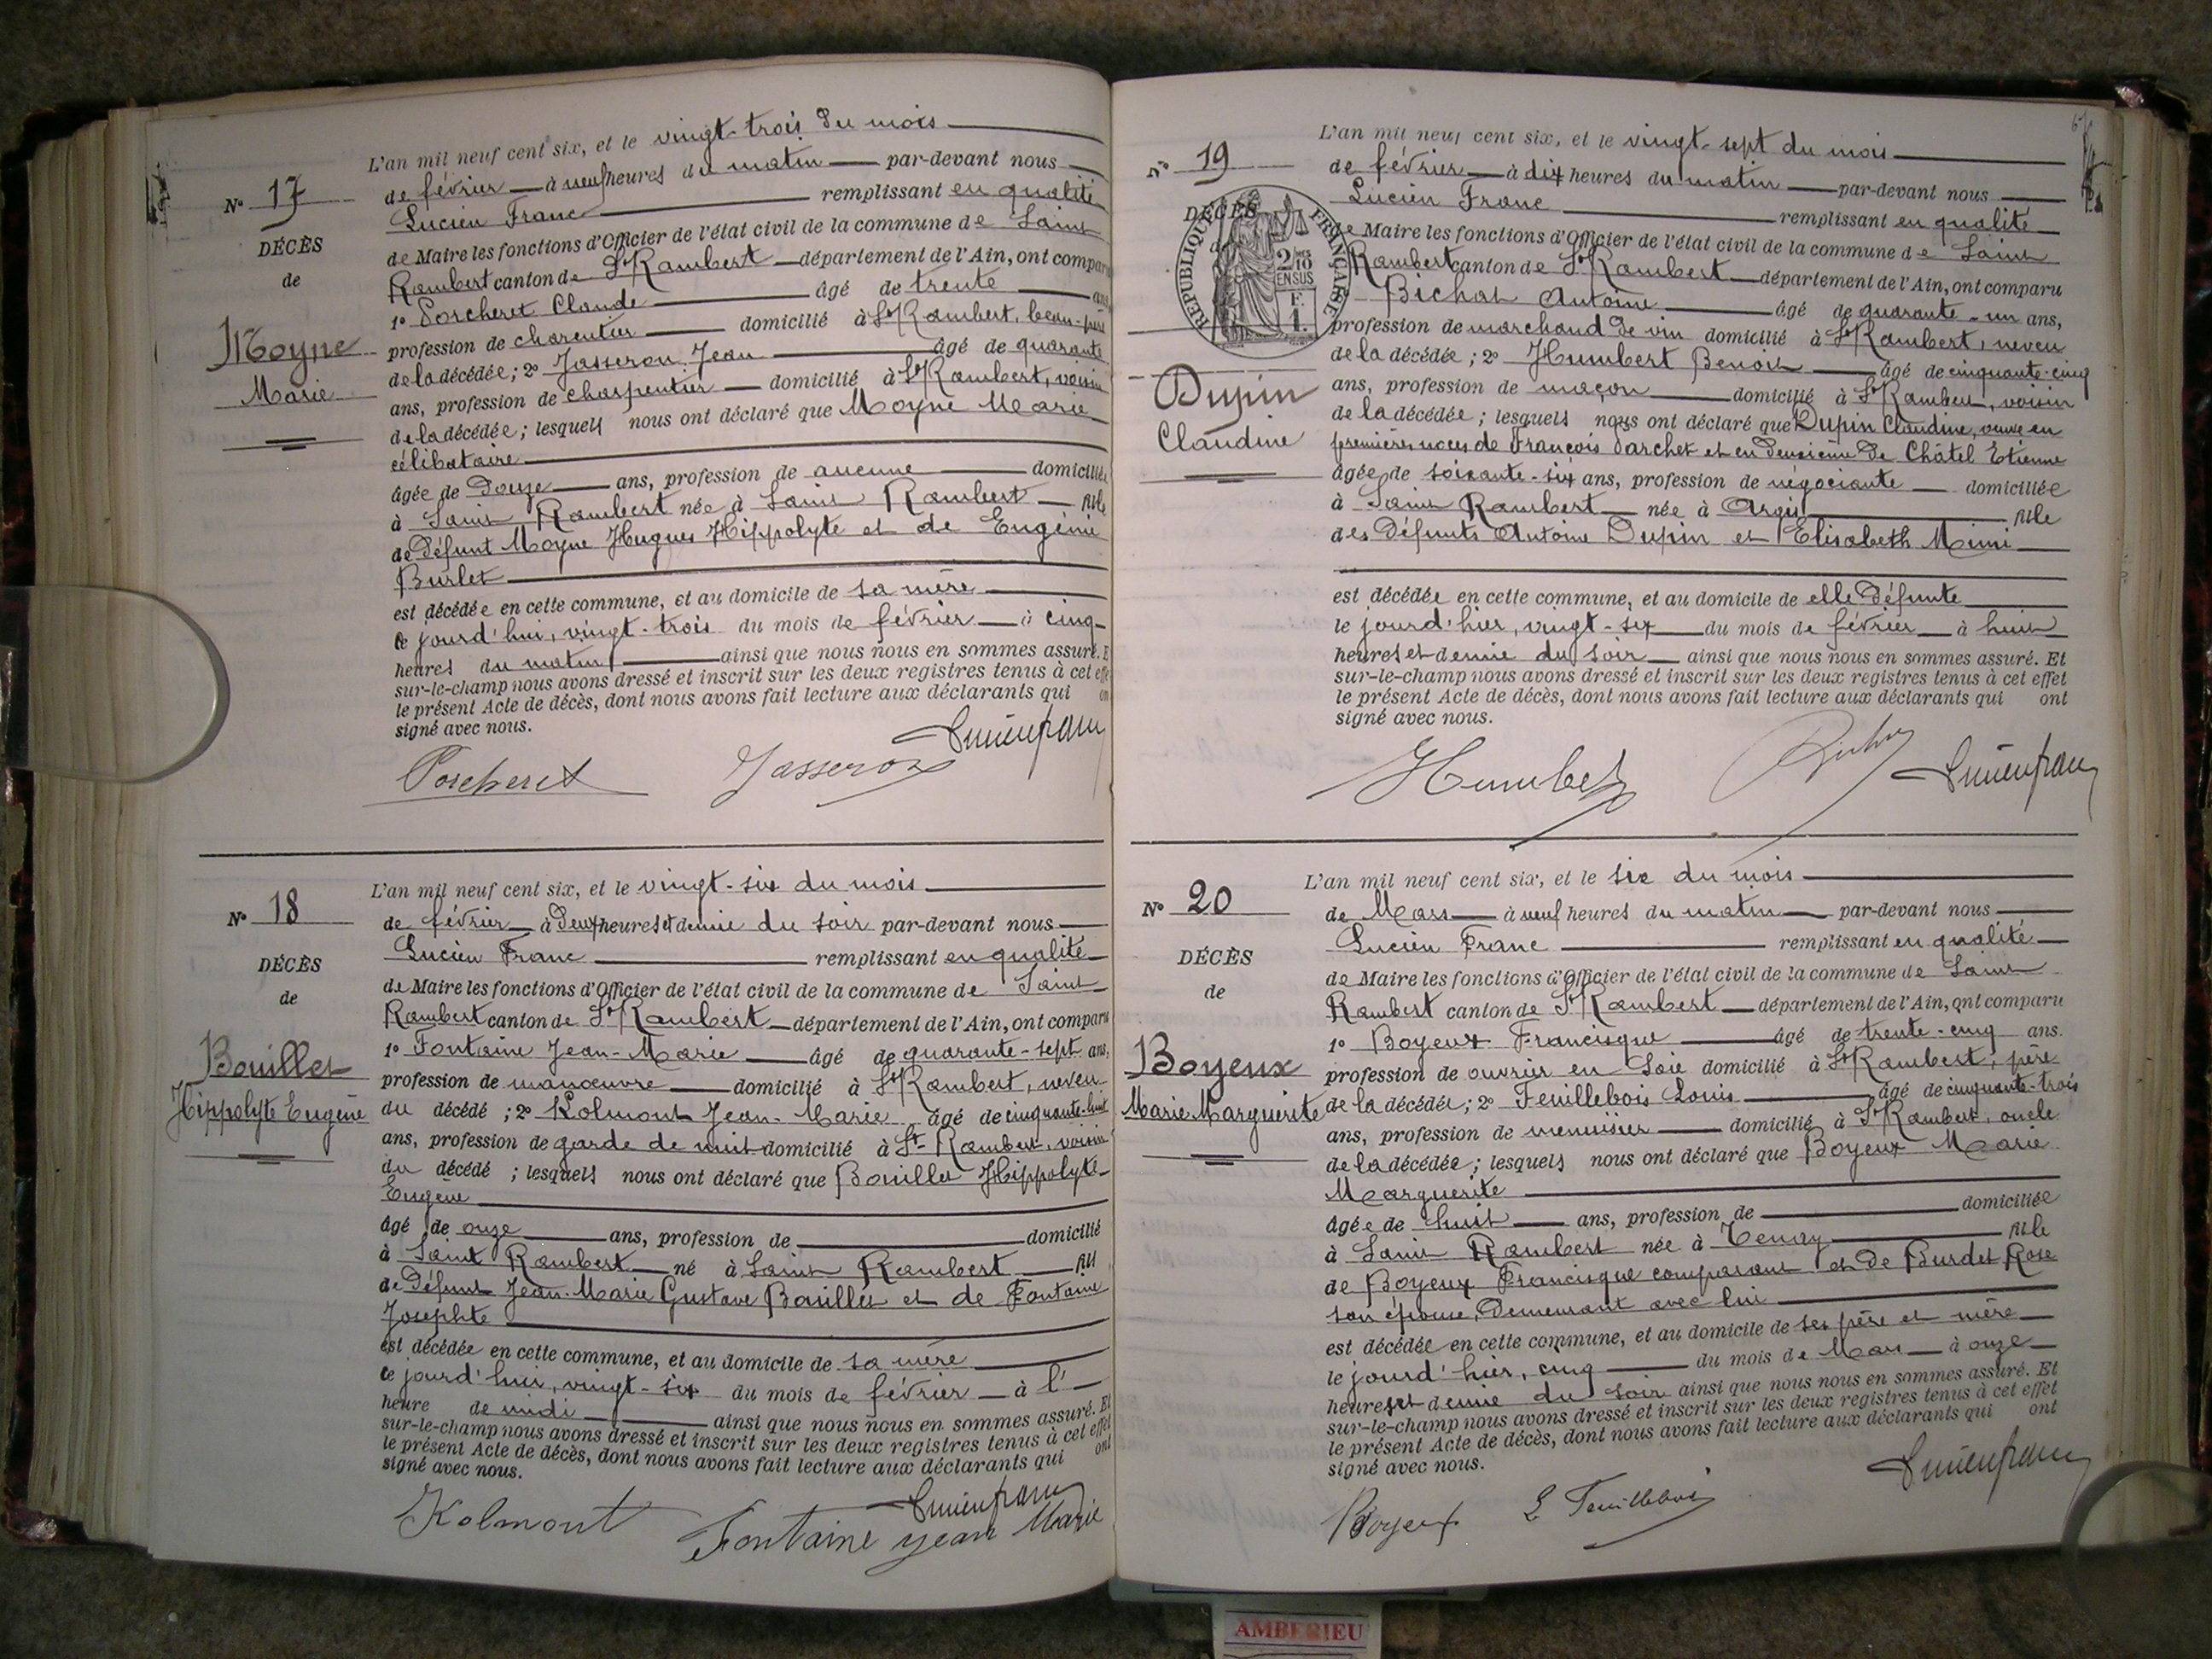 N° 17
DÉCÈS
de
Moyne
Marie
L'an mil neuf cent six, et le vingt-trois du mois
de février à neuf heures du matin par-devant nous
Lucien Franc remplissant en qualité
de Maire les fonctions d'Officier de l'état civil de la commune de Saint
Rambert canton de St Rambert département de l'Ain, ont comparu
1° Porcheret Claude âgé de trente ans
profession de charentier domicilié à St Rambert, beau-père
de la décédée; 2° Jasseron Jean âgé de quarante
ans, profession de charpentier domicilié à St Rambert, voisin
de la décédée; lesquels nous ont déclaré que Moyne Marie
célibataire
âgée de douze ans, profession de aucune domiciliée
à Saint Rambert née à Saint Rambert fille
de défunt Moyne Hugues Hippolyte et de Eugénie
Burlet
est décédée en cette commune, et au domicile de sa mère
ce jourd'hui, vingt-trois du mois de février à cinq
heures du matin ainsi que nous nous en sommes assuré. E
sur-le-champ nous avons dressé et inscrit sur les deux registres tenus à cet effe
le présent Acte de décès, dont nous avons fait lecture aux déclarants qui on
signé avec nous.
Lucien Franc
Porcheret Jasseron
N° 18
DÉCÈS
de
Bouillet
Hippolyte Eugène
L'an mil neuf cent six, et le vingt-six du mois
de février à deux heures et demie du soir par-devant nous
Lucien Franc remplissant en qualité
de Maire les fonctions d'Officier de l'état civil de la commune de Saint
Rambert canton de St Rambert département de l'Ain, ont comparu
1° Fontaine Jean-Marie âgé de quarante-sept ans,
profession de manœuvre domicilié à St Rambert, neveu
du décédé; 2° Kolmont Jean-Marie âgé de cinquante-huit
ans, profession de garde de nuit domicilié à St Rambert, voisin
du décédé; lesquels nous ont déclaré que Bouillet Hippolyte
Eugène
âgé de onze ans, profession de domicilié
à Saint Rambert né à Saint Rambert fils
de défunt Jean-Marie Gustave Bouillet et de Fontaine
Josephte
est décédée en cette commune, et au domicile de sa mère
ce jourd'hui, vingt-six du mois de février à l'
heure de midi ainsi que nous nous en sommes assuré. Et
sur-le-champ nous avons dressé et inscrit sur les deux registres tenus à cet effet
le présent Acte de décès, dont nous avons fait lecture aux déclarants qui ont
signé avec nous.
Lucien Franc
Kolmont Fontaine jean Marie
N° 19
DÉCÈS
de
RÉPUBLIQUE FRANÇAISE
2/10
EN SUS
F.
1.
Dupin
Claudine
L'an mil neuf cent six, et le vingt-sept du mois
de février à dix heures du matin par-devant nous
Lucien Franc remplissant en qualité
de Maire les fonctions d'Officier de l'état civil de la commune de Saint
Rambert canton de St Rambert département de l'Ain, ont comparu
Bichat Antoine âgé de quarante-un ans,
profession de marchand de vin domicilié à St Rambert, neveu
de la décédée; 2° Humbert Benoit âgé de cinquante-cinq
ans, profession de maçon domicilié à St Rambert, voisin
de la décédée; lesquels nous ont déclaré que Dupin Claudine, veuve en
premières noces de François Darchet et en deuxième de Châtel Etienne
âgée de soixante-six ans, profession de négociante domiciliée
à Saint Rambert née à Argis fille
des défunts Antoine Dupin et Elisabeth Mimi
est décédée en cette commune, et au domicile de elle défunte
le jourd'hier, vingt-six du mois de février à huit
heures et demie du soir ainsi que nous nous en sommes assuré. Et
sur-le-champ nous avons dressé et inscrit sur les deux registres tenus à cet effet
le présent Acte de décès, dont nous avons fait lecture aux déclarants qui ont
signé avec nous.
Humbert Bichat Lucien Franc
N° 20
DÉCÈS
de
Boyeux
Marie Marguerite
L'an mil neuf cent six, et le six du mois
de Mars à neuf heures du matin par-devant nous
Lucien Franc remplissant en qualité
de Maire les fonctions d'Officier de l'état civil de la commune de Saint
Rambert canton de St Rambert département de l'Ain, ont comparu
1° Boyeux Francisque âgé de trente-cinq ans.
profession de ouvrier en soie domicilié à St Rambert, père
de la décédée; 2° Feuillebois Louis âgé de cinquante-trois
ans, profession de menuisier domicilié à St Rambert, oncle
de la décédée; lesquels nous ont déclaré que Boyeux Marie
Marguerite
âgée de huit ans, profession de domiciliée
à Saint Rambert née à Tenay fille
de Boyeux Francisque comparant et de Burdet Rose
son épouse, demeurant avec lui
est décédée en cette commune, et au domicile de ses père et mère
le jourd'hier, cinq du mois de Mars à onze
heures et demie du soir ainsi que nous nous en sommes assuré. Et
sur-le-champ nous avons dressé et inscrit sur les deux registres tenus à cet effet
le présent Acte de décès, dont nous avons fait lecture aux déclarants qui ont
signé avec nous.
Lucien Franc
Boyeux L Feuillebois
AMBERIEU